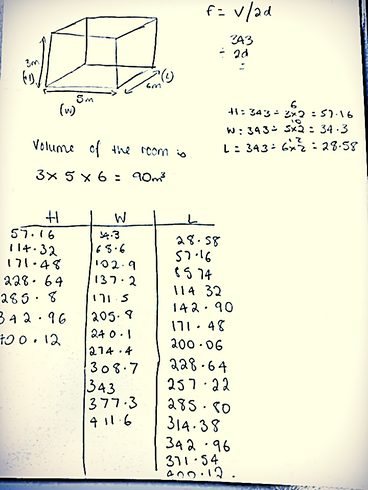 f = V/2d
343
÷ 2d
=
3m
(H)
5m
(W)
6m
(L)
6
H = 343 ÷ 3x2 = 57.16
10
W = 343 ÷ 5x2 = 34.3
12
L = 343 ÷ 6x2 = 28.58
Volume of the room is
3 x 5 x 6 = 90m³
H W L
57.16 34.3 28.58
114.32 68.6 57.16
171.48 102.9 85 74
228.64 137.2 114 32
285.8 171.5 142.90
342.96 205.8 171.48
400.12 240.1 200.06
274.4 228.64
308.7 257.22
343 285.80
377.3 314.38
411.6 342.96
371.54
400.12.